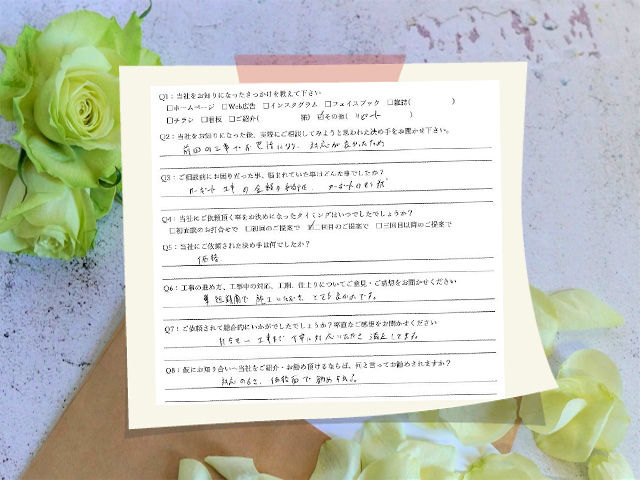 Q1：当社をお知りになったきっかけを教えて下さい
□ホームページ □Web広告 □インスタグラム □フェイスブック □雑誌( )
□チラシ □看板 □ご紹介( 様) ☑その他( リピート )
Q2：当社をお知りになった後、実際にご相談してみようと思われた決め手をお聞かせ下さい。
前回の工事でお世話になり、対応が良かったため
Q3：ご相談前にお困りだった事、悩まれていた事はどんな事でしたか？
カーポート工事の金額の
Q4：当社にご依頼頂く事をお決めになったタイミングはいつでしたでしょうか？
□初面談のお打合せで □初回のご提案で ☑二回目のご提案で □三回目以降のご提案で
Q5：当社にご依頼された決め手は何でしたか？
価格
Q6：工事の進め方、工事中の対応、工期、仕上りについてご意見・ご感想をお聞かせください
短期間で施工いただき、とても良かったです。
Q7：ご依頼されて総合的にいかがでしたでしょうか？率直なご感想をお聞かせください
打合せ〜工事まで丁寧に対応いただき満足してます。
Q8：仮にお知り合いへ当社をご紹介・お勧め頂けるならば、何と言ってお勧めされますか？
対応のよさ、価格面で勧められる。